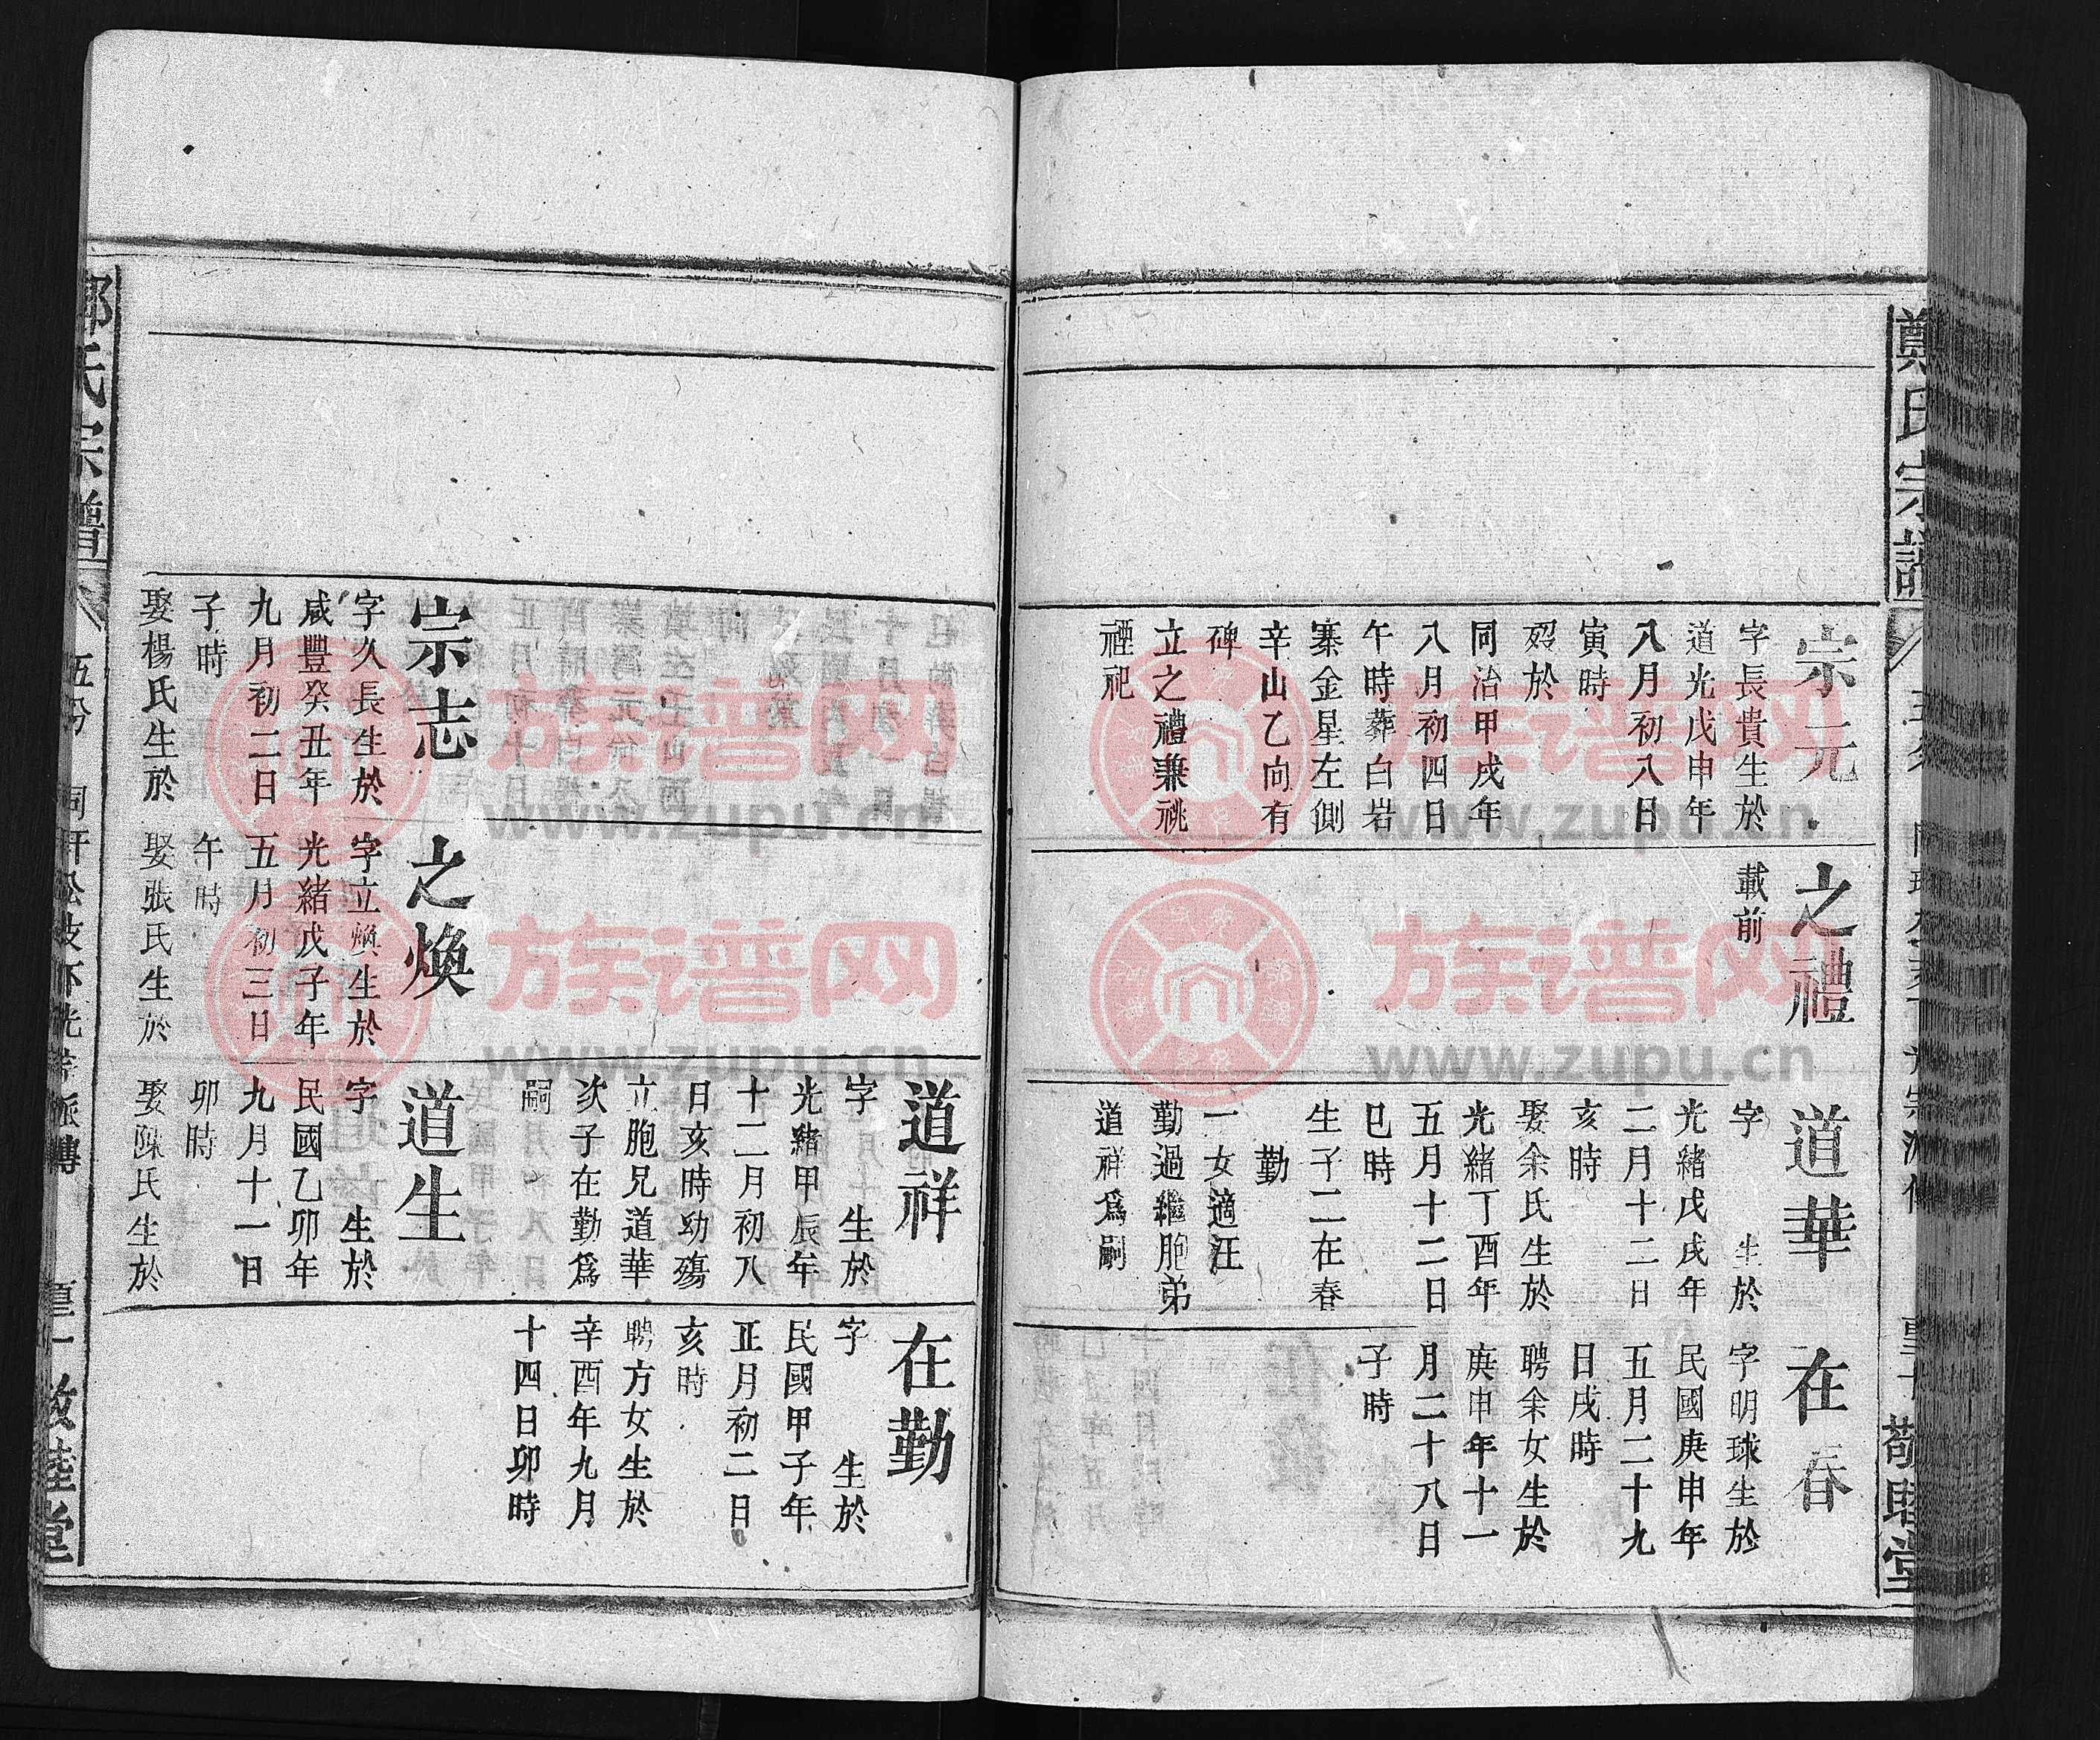 鄭氏宗譜
敬睦堂
宗元
字長貴生於
道光戊申年
八月初八日
寅時
歿於
同治甲戌年
八月初四日
午時葬白岩
寨金星左側
辛山乙向有
碑
立之禮兼祧
禋祀
之禮
載前
道華
字 生於
光緒戊戌年
二月十二日
亥時
娶余氏生於
光緒丁酉年
五月十二日
巳時
生子二在春
勤
一女適汪
勤過繼胞弟
道祥為嗣
在春
字明球生於
民國庚申年
五月二十九
日戌時
聘余女生於
庚申年十一
月二十八日
子時
道祥
字 生於
光緒甲辰年
十二月初八
日亥時幼殤
立胞兄道華
次子在勤為
嗣
在勤
字 生於
民國甲子年
正月初二日
亥時
聘方女生於
辛酉年九月
十四日卯時
宗志
字久長生於
咸豐癸丑年
九月初二日
子時
娶楊氏生於
之煥
字立煥生於
光緒戊子年
五月初三日
午時
娶張氏生於
道生
字 生於
民國乙卯年
九月十一日
卯時
娶陳氏生於
氏宗譜
五分
敦睦堂
族谱网
www.zupu.cn
族谱网
www.zupu.cn
族谱网
www.zupu.cn
族谱网
www.zupu.cn